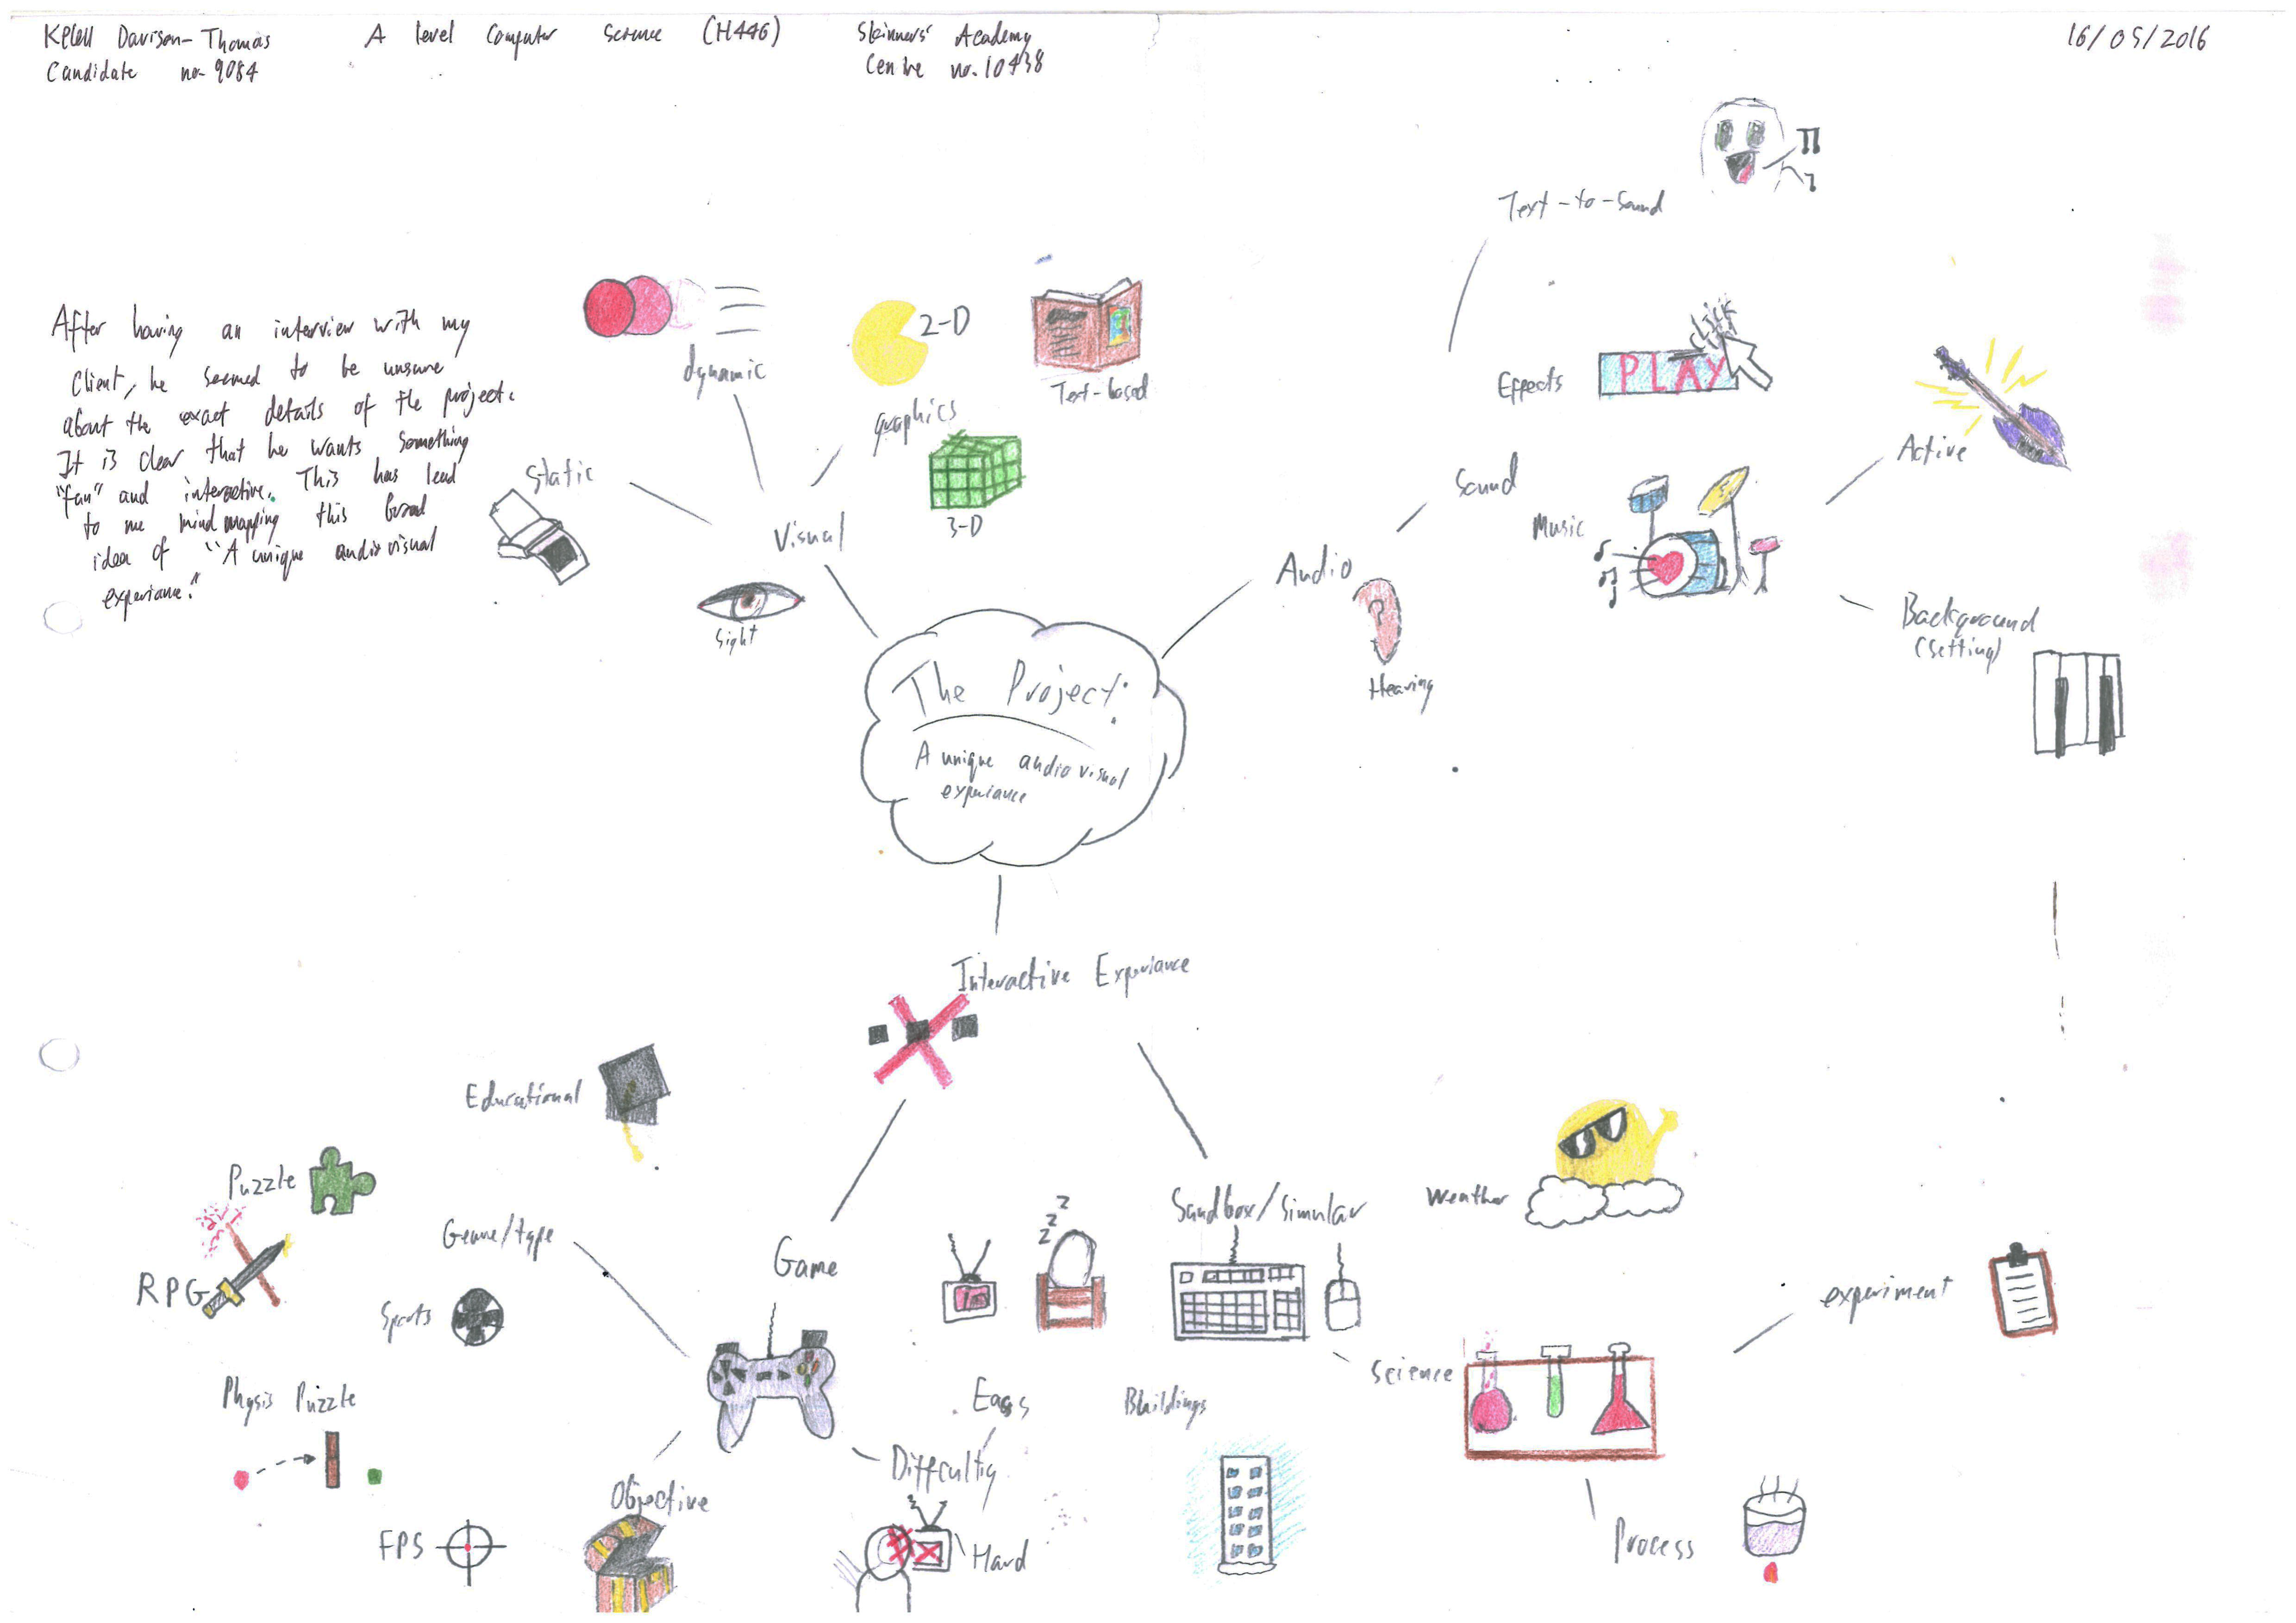 Kelell Davison-Thomas A level Computer Science (H446) Skinners' Academy 16/05/2016
Candidate no. 9084 Centre no. 10438
After having an interview with my
client, he seemed to be unsure
about the exact details of the project.
It is clear that he wants something
"fun" and interactive. This has lead
to me mind mapping this broad
idea of "A unique audio visual
experiance."
The Project:
A unique audio visual
experiance
Visual
Sight
Static
dynamic
graphics
2-D
3-D
Text-based
Audio
Hearing
Sound
Text-to-Sound
Effects
PLAY
click
Music
Active
Background
(Setting)
Interactive Experiance
Game
Genre/type
Educational
Puzzle
RPG
Sports
Physis Puzzle
FPS
Objective
Difficulty
Easy
Hard
z
z
z
Sandbox/Simular
Buildings
Science
Weather
experiment
Process